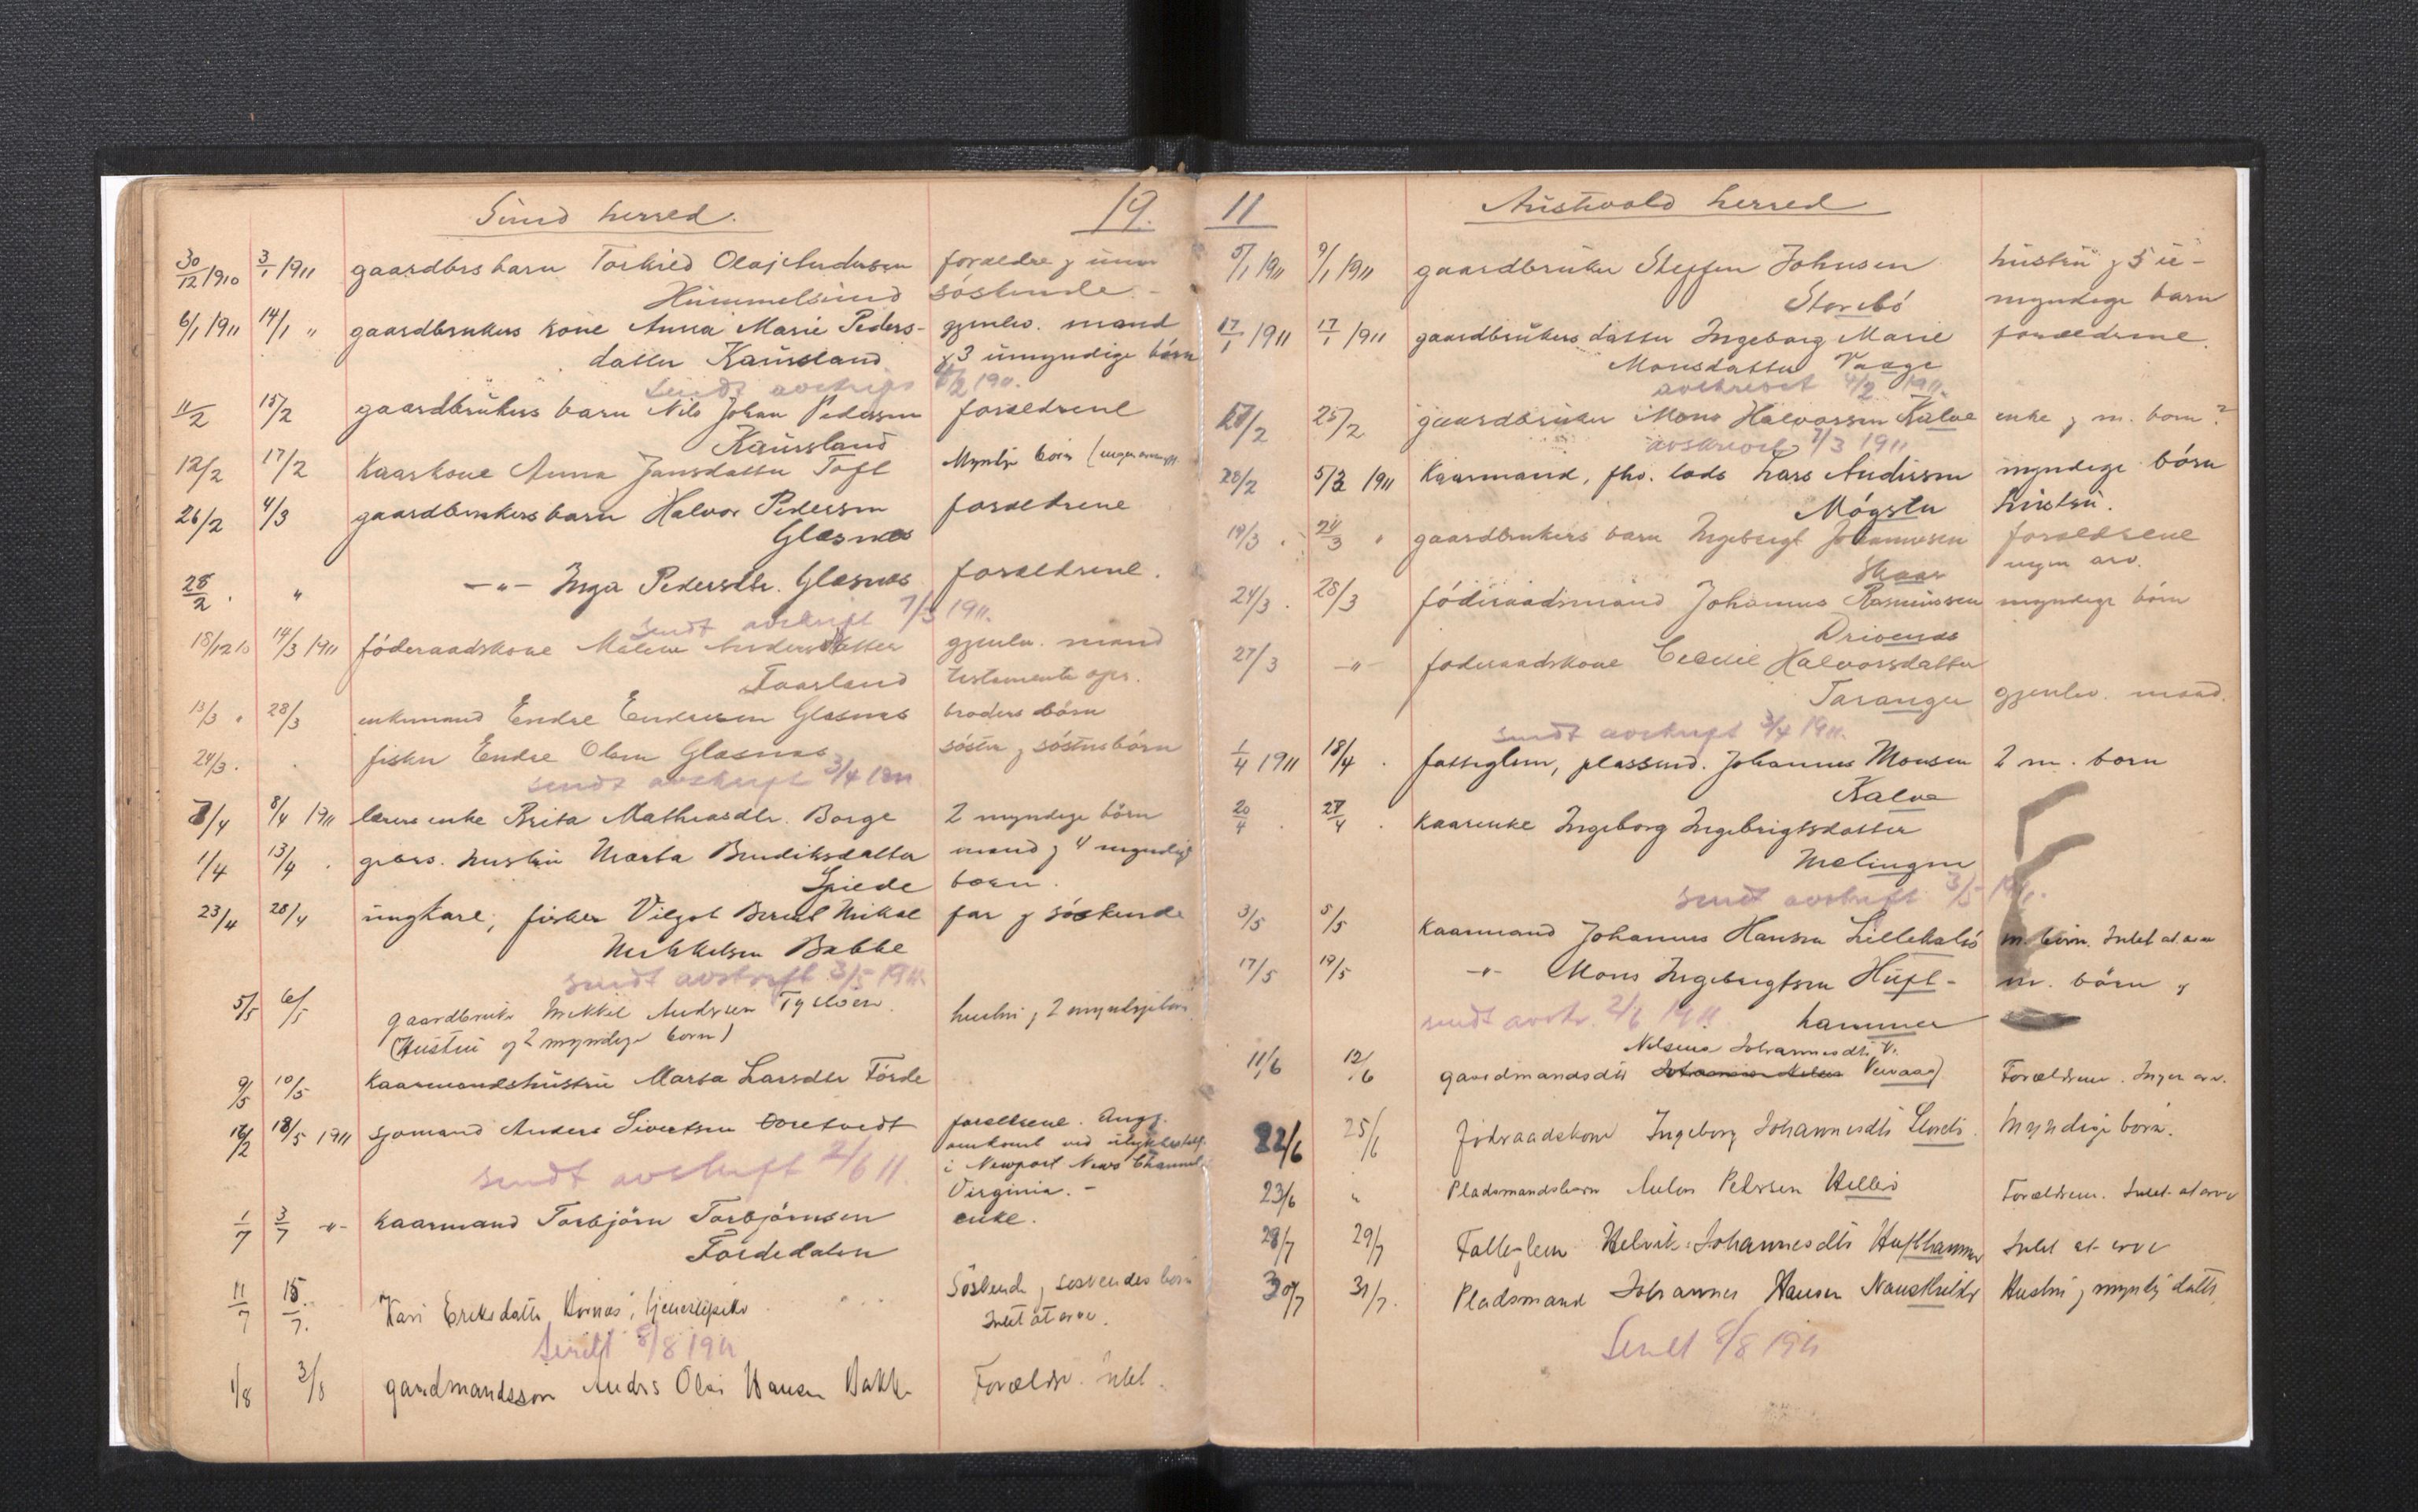 Sund herred.
19.
30/12 1910 3/1 1911 gaardbrs barn Torkied Olaf Andersen forældre j umn
Hummelsund søskende -
6/1 1911 14/1 " gaardbrukers kone Anna Marie Peders- gjenlev. mand
datter Kausland j 3 umyndige børn
sendt avskrift 4/2 1911.
11/2 15/2 gaardbrukers barn Nils Johan Pedersen forældrene
Kausland
12/2 17/2 Kaarkone Anna Jansdatter Toft Myndige børn
26/2 4/3 gaardbrukers barn Halvor Pedersen forældrene
Glesnes
28/2 . " -"- Inga Pedersdtr. Glesnes forældrene.
sendt avskrift 7/3 1911.
18/12 10 14/3 1911 føderaadskone Malene Andersdatter gjenlev. mand
Taarland testamente opr.
13/3 " 28/3 enkemand Endre Endresen Glesnes broders børn
24/3 . fisker Endre Olsen Glesnes søster j søsters børn
sendt avskrift 3/4 1911
3/4 8/4 1911 lærers enke Brita Mathiasdtr. Borge 2 myndige børn
1/4 13/4 . hustru Marta Bendiksdatter mand j 4 myndige
Spiede børn.
23/4 28/4 ungkarl, fisker Bernt Mikal far j søskende
Mikkelsen Bakke
sendt avskrift 3/5 1911.
5/5 6/5 gaardbruker Mikkel Andersen hustru j 2 myndige børn
(Hustru og 2 myndige børn)
9/5 10/5 Kaarmandshustru Marta Larsdtr Førde
16/2 18/5 1911 sjømand Anders Sivertsen Toretvedt forældrene. Ang.
omkomt ved ulykkestilf.
i Newport News Channel
sendt avskrift 2/6 11.
Virginia. -
1/7 3/7 -"- Kaarmand Torbjørn Torbjørnsen enke.
Førdedalen
11/7 15/7. Kari Eriksdatter tjenestepike Søskende j søskendes børn
Intet at arve.
Sendt 8/8 1911
1/8 3/8 gaardmandssøn Andrs Olai Hansen Bakke Forældre. intet.
11
Austevold herred
5/1 1911 9/1 1911 gaardbruker Steffen Johnsen hustru j 5 u-
Storebø myndige barn
17/1 1911 17/1 1911 gaardbrukers datter Ingeborg Marie forældrene.
Monsdatter Vaage
avskrevet 4/2 1911.
25/2 gaardbruker Mons Halvorsen Kalve enke j m. born?
avskrevet 7/3 1911
28/2 5/3 1911 Kaarmand, fhv. lods Lars Andersen myndige børn
Møgster hustru.
19/3 . 24/3 " gaardbrukers barn Ingebrigt Johannesen forældrene
Skaar ingen arv.
24/3 . 28/3 føderaadsmand Johannes Rasmussen myndige børn
Drivenes
27/3 -"- føderaadskone Cecilie Halvorsdatter
Taranger gjenlev. mand.
sendt avskrift 3/4 1911.
1/4 1911 18/4 . fattiglem, plassmd. Johannes Monsen 2 m. born
Kalve
20/4 . 27/4 . Kaarenke Ingeborg Ingebrigtsdatter
Melingen
sendt avskrift 3/5 1911.
3/5 5/5 Kaarmand Johannes Hansen Lillekalsø m. børn. Intet at arve
17/5 19/5 -"- Mons Ingebrigtsen Huft- m. børn j
sendt avskr. 2/6 1911 hammer
Nelsina Johannesdtr V.
11/6 12/6 gaardmandsdtr Veivaag Forældrene. Ingen arv.
22/6 25/6 Føderaadskone Ingeborg Johannesdtr Storebø. Myndige børn.
23/6 " Pladsmandsbarn Anton Petersen Hellesø Forældrene. Intet at arve
28/7 29/7 Fattiglem Helvik Johannesdtr Hufthammer Intet at arve
30/7 31/7. Pladsmand Johannes Hansen Hustru j myndig datter
Sendt 8/8 1911